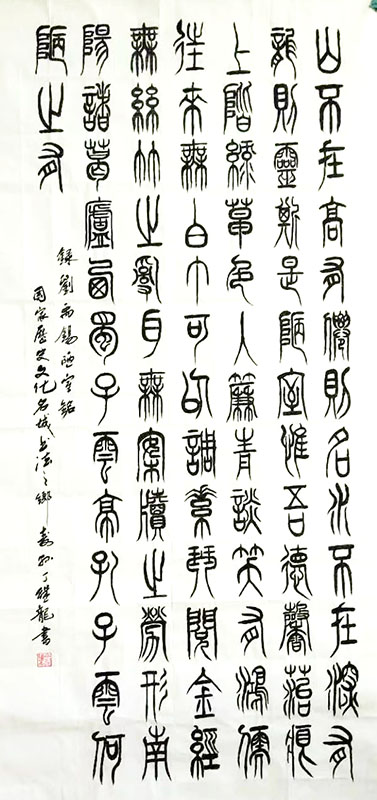 山不在高有僊則名水不在深有
龍則靈斯是陋室惟吾德馨苔痕
上階綠草色人簾青談笑有鴻儒
往來無白丁可以調素琴閱金經
無絲竹之亂耳無案牘之勞形南
陽諸葛廬西蜀子雲亭孔子雲何
陋之有
錄劉禹錫陋室銘
國家歷史文化名城书法之鄉 壽縣丁继龍書